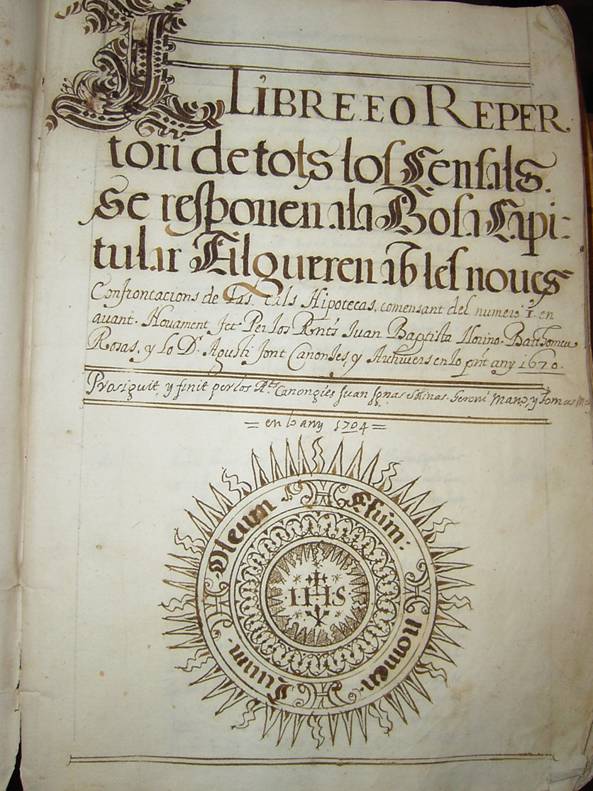 LLIBRE E O REPER
tori de tots los Censals.
se responen ala Bosa Capi-
tular Filgueren ab les noves
Confrontacions de Cas. tals Hipotecas, comensant del numero 1. en
avant. Novament fet Per los Rnts Juan Baptista Morino. Barthomeu
Rosas, y lo Dr. Agusti font Canonies, y Archivers en lo prnt any 1670.
Prosiguit y finit per los Rts Canongies Juan Ignasi Salinas. Geroni Manz y Tomas
= en lo any 1704 =
Oleum Efusum: nomen. Tuum.
IHS